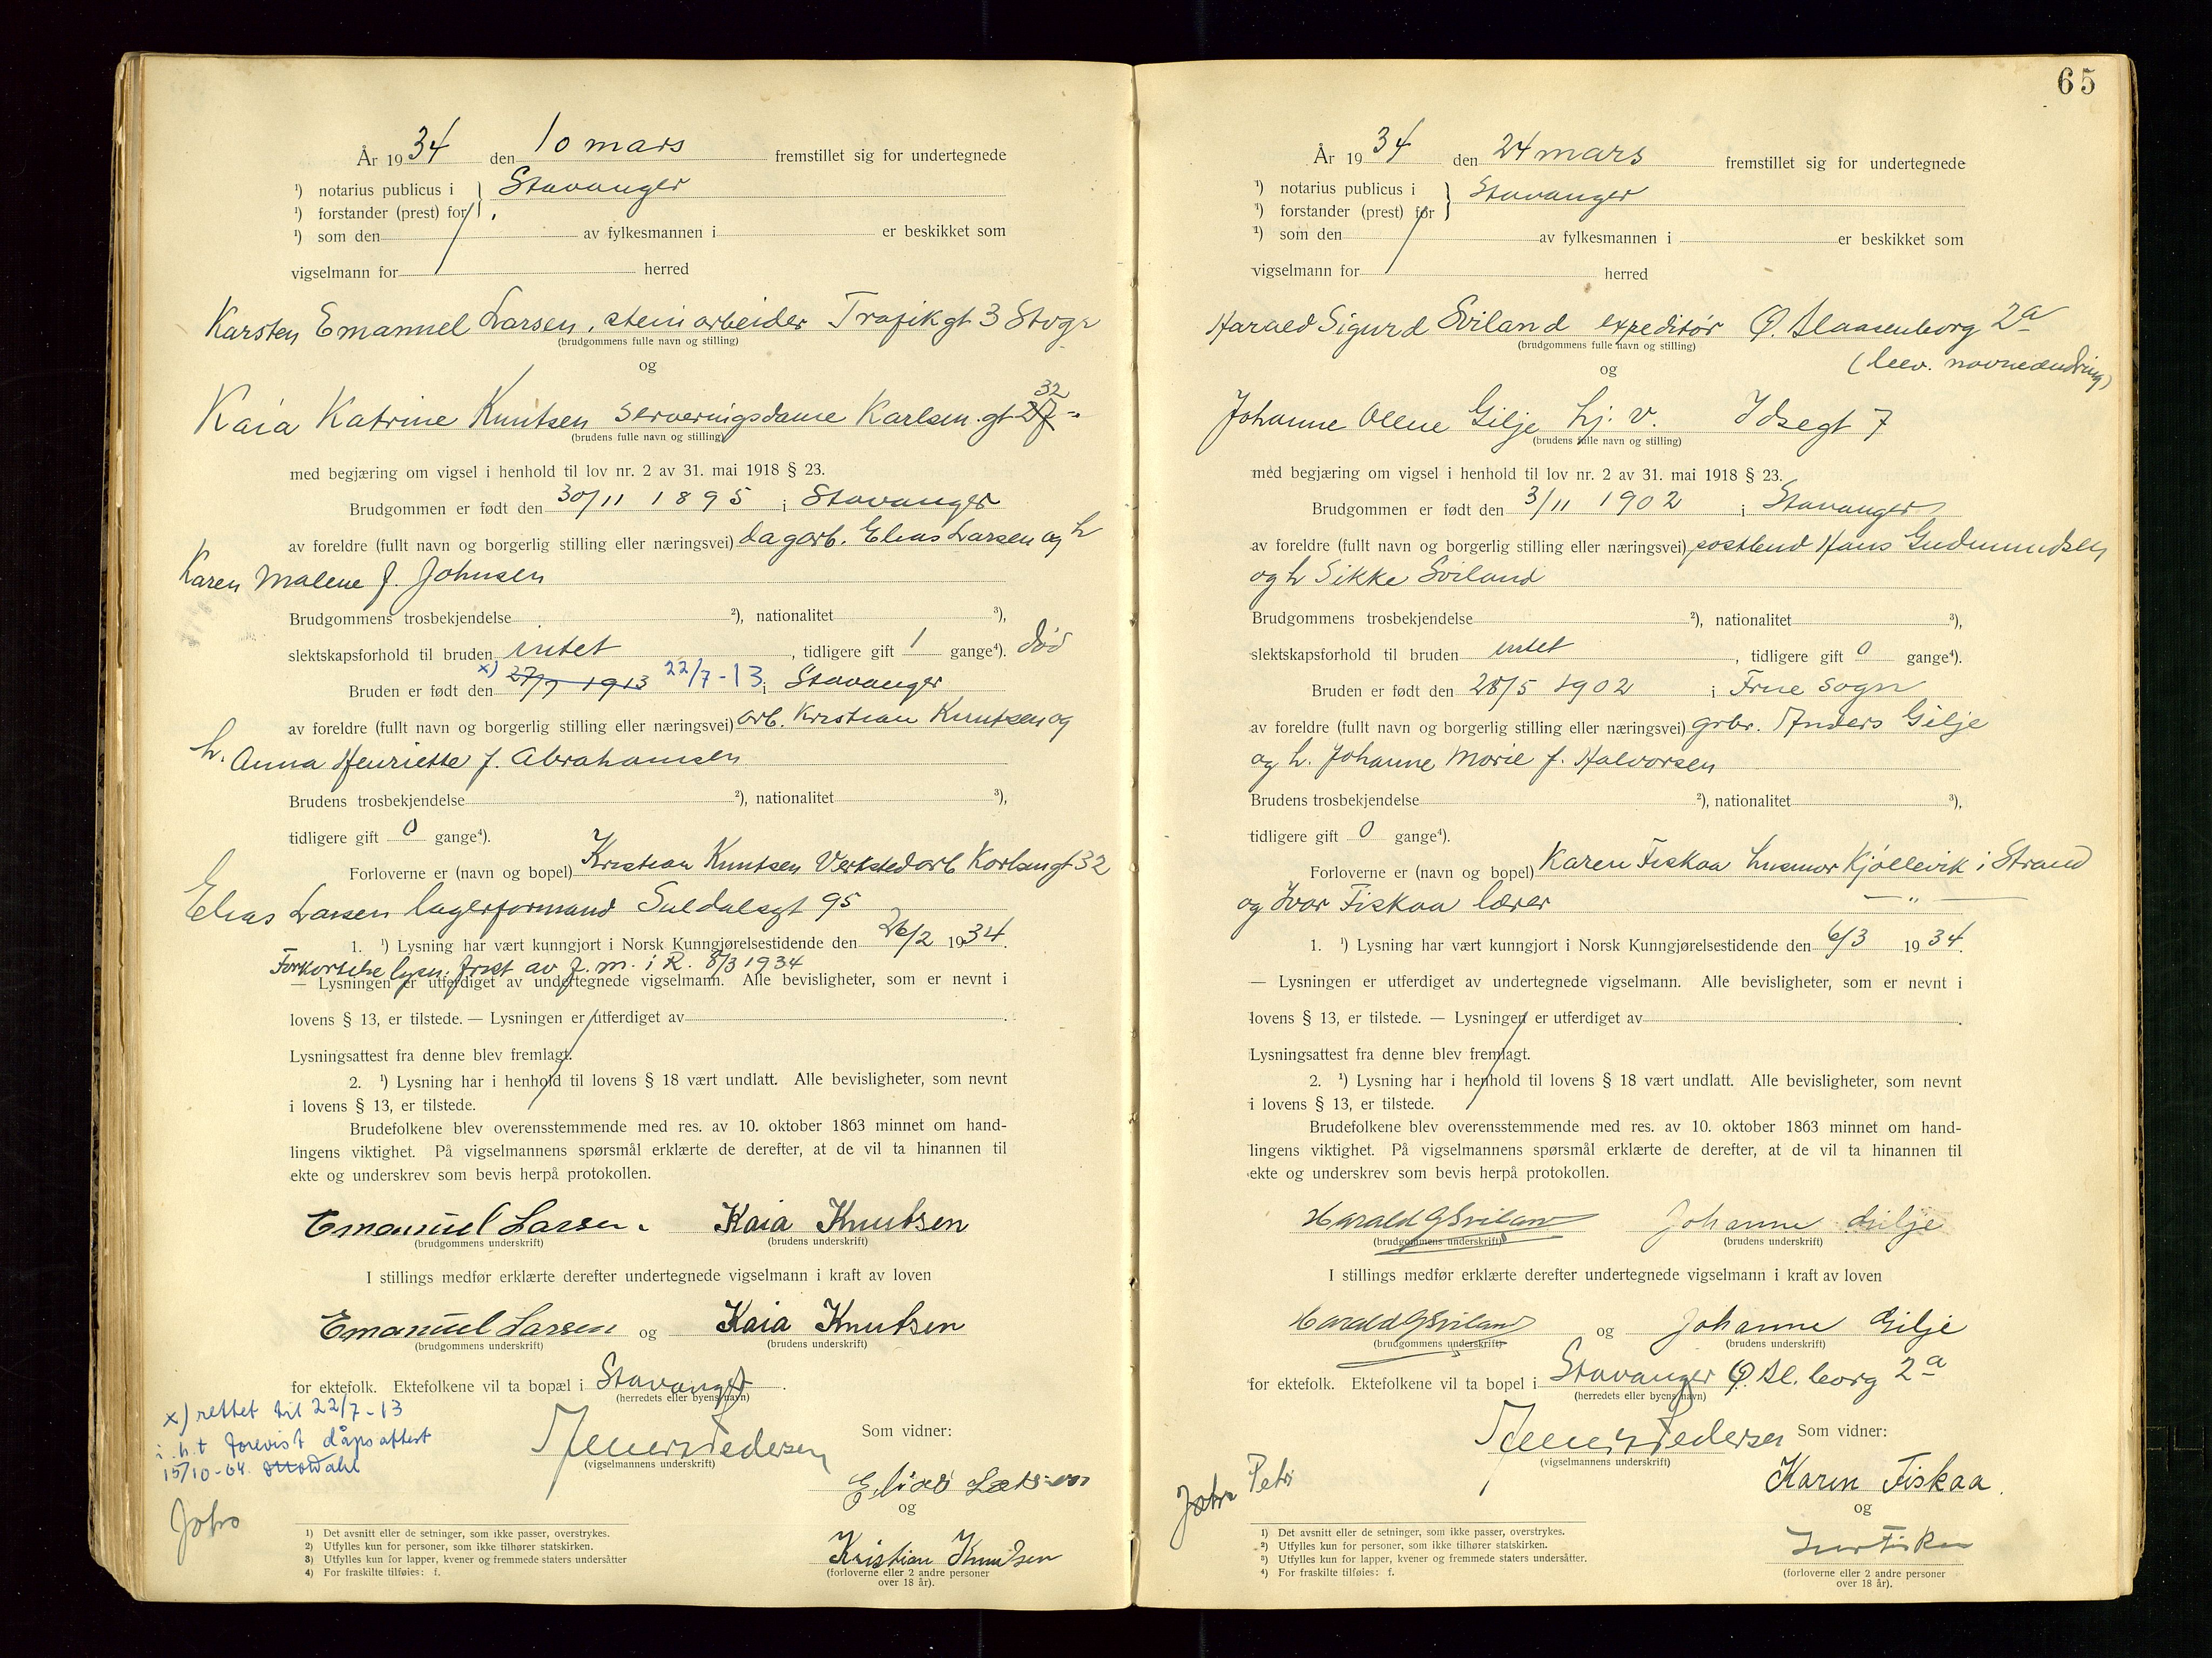 År 1934 den 10 mars fremstillet sig for undertegnede
¹) notarius publicus i } Stavanger
¹) forstander (prest) for
¹) som den av fylkesmannen i er beskikket som
vigselmann for herred
Karsten Emanuel Larsen, steinarbeider Trafikgt 3 Stvgr
(brudgommens fulle navn og stilling)
og
32
Kaia Katrine Knutsen serveringsdame Karlsm.gt 27
(brudens fulle navn og stilling)
med begjæring om vigsel i henhold til lov nr. 2 av 31. mai 1918 § 23.
Brudgommen er født den 30/11 1895 i Stavanger
av foreldre (fullt navn og borgerlig stilling eller næringsvei) dagarb. Elias Larsen og h
Karen Malene f. Johnsen
Brudgommens trosbekjendelse ²), nationalitet ³),
slektskapsforhold til bruden intet, tidligere gift 1 gange⁴). død
Bruden er født den x) 27/7 1913 22/7-13 i Stavanger
av foreldre (fullt navn og borgerlig stilling eller næringsvei) arb. Kristian Knutsen og
h. Anna Henriette f. Abrahamsen
Brudens trosbekjendelse ²), nationalitet ³),
tidligere gift 0 gange⁴).
Forloverne er (navn og bopel) Kristian Knutsen Verkstedarb Karlsmgt 32
Elias Larsen lagerformand Suldalsgt 95
1. ¹) Lysning har vært kunngjort i Norsk Kunngjørelsestidende den 26/2 1934.
Forkortelse lysn. frist av J. m. i R. 8/3 1934
— Lysningen er utferdiget av undertegnede vigselmann. Alle bevisligheter, som er nevnt i
lovens § 13, er tilstede. — Lysningen er utferdiget av .
Lysningsattest fra denne blev fremlagt.
2. ¹) Lysning har i henhold til lovens § 18 vært undlatt. Alle bevisligheter, som nevnt
i lovens § 13, er tilstede.
Brudefolkene blev overensstemmende med res. av 10. oktober 1863 minnet om hand-
lingens viktighet. På vigselmannens spørsmål erklærte de derefter, at de vil ta hinannen til
ekte og underskrev som bevis herpå protokollen.
Emanuel Larsen. Kaia Knutsen
(brudgommens underskrift) (brudens underskrift)
I stillings medfør erklærte derefter undertegnede vigselmann i kraft av loven
Emanuel Larsen og Kaia Knutsen
(brudgommens underskrift) (brudens underskrift)
for ektefolk. Ektefolkene vil ta bopæl i Stavanger.
(herredets eller byens navn)
x) rettet til 22/7-13
i h.t forevist dåpsattest
15/10-64.
Som vidner:
(vigselmannens underskrift)
Elias Larsen
og
Kristian Knudsen
(forloverne eller 2 andre personer
over 18 år).
1) Det avsnitt eller de setninger, som ikke passer, overstrykes.
2) Utfylles kun for personer, som ikke tilhører statskirken.
3) Utfylles kun for lapper, kvener og fremmede staters undersåtter
4) For fraskilte tilføies: f.
65
År 1934 den 24 mars fremstillet sig for undertegnede
¹) notarius publicus i } Stavanger
¹) forstander (prest) for
¹) som den av fylkesmannen i er beskikket som
vigselmann for herred
Harald Sigurd Sviland expeditør Ø. Blaasenborg 2a
(brudgommens fulle navn og stilling)
(bev. navneendring)
og
Johanne Oline Gilje hj. v. Idsegt 7
(brudens fulle navn og stilling)
med begjæring om vigsel i henhold til lov nr. 2 av 31. mai 1918 § 23.
Brudgommen er født den 3/11 1902 i Stavanger
av foreldre (fullt navn og borgerlig stilling eller næringsvei) postbud Hans Gudmundsen
og h Sikke Sviland
Brudgommens trosbekjendelse ²), nationalitet ³),
slektskapsforhold til bruden intet, tidligere gift 0 gange⁴).
Bruden er født den 28/5 1902 i Frue sogn
av foreldre (fullt navn og borgerlig stilling eller næringsvei) grbr. Anders Gilje
og h. Johanne Marie f. Halvorsen
Brudens trosbekjendelse ²), nationalitet ³),
tidligere gift 0 gange⁴).
Forloverne er (navn og bopel) Karen Fiskaa husmor Kjøllevik i Strand
og Ivar Fiskaa lærer — " —
1. ¹) Lysning har vært kunngjort i Norsk Kunngjørelsestidende den 6/3 1934.
— Lysningen er utferdiget av undertegnede vigselmann. Alle bevisligheter, som er nevnt i
lovens § 13, er tilstede. — Lysningen er utferdiget av .
Lysningsattest fra denne blev fremlagt.
2. ¹) Lysning har i henhold til lovens § 18 vært undlatt. Alle bevisligheter, som nevnt
i lovens § 13, er tilstede.
Brudefolkene blev overensstemmende med res. av 10. oktober 1863 minnet om hand-
lingens viktighet. På vigselmannens spørsmål erklærte de derefter, at de vil ta hinannen til
ekte og underskrev som bevis herpå protokollen.
Harald G Sviland Johanne Gilje
(brudgommens underskrift) (brudens underskrift)
I stillings medfør erklærte derefter undertegnede vigselmann i kraft av loven
Harald G Sviland og Johanne Gilje
(brudgommens underskrift) (brudens underskrift)
for ektefolk. Ektefolkene vil ta bopel i Stavanger Ø. Bl. borg 2a
(herredets eller byens navn)
Som vidner:
(vigselmannens underskrift)
Karen Fiskaa.
og
Ivar Fiskaa
(forloverne eller 2 andre personer
over 18 år).
1) Det avsnitt eller de setninger, som ikke passer, overstrykes.
2) Utfylles kun for personer, som ikke tilhører statskirken.
3) Utfylles kun for lapper, kvener og fremmede staters undersåtter.
4) For fraskilte tilføies: f.